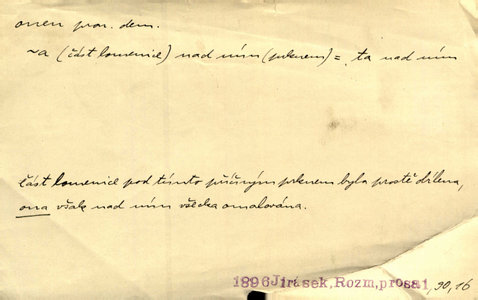 onen pron. dem.
~a (část lomenice) nad ním (prknem) = ta nad ním
část lomenice pod tímto příčným prknem byla prostě dílena,
ona však nad ním všecka omalována.
1896 Jirásek, Rozm, prosa 1, 90, 16